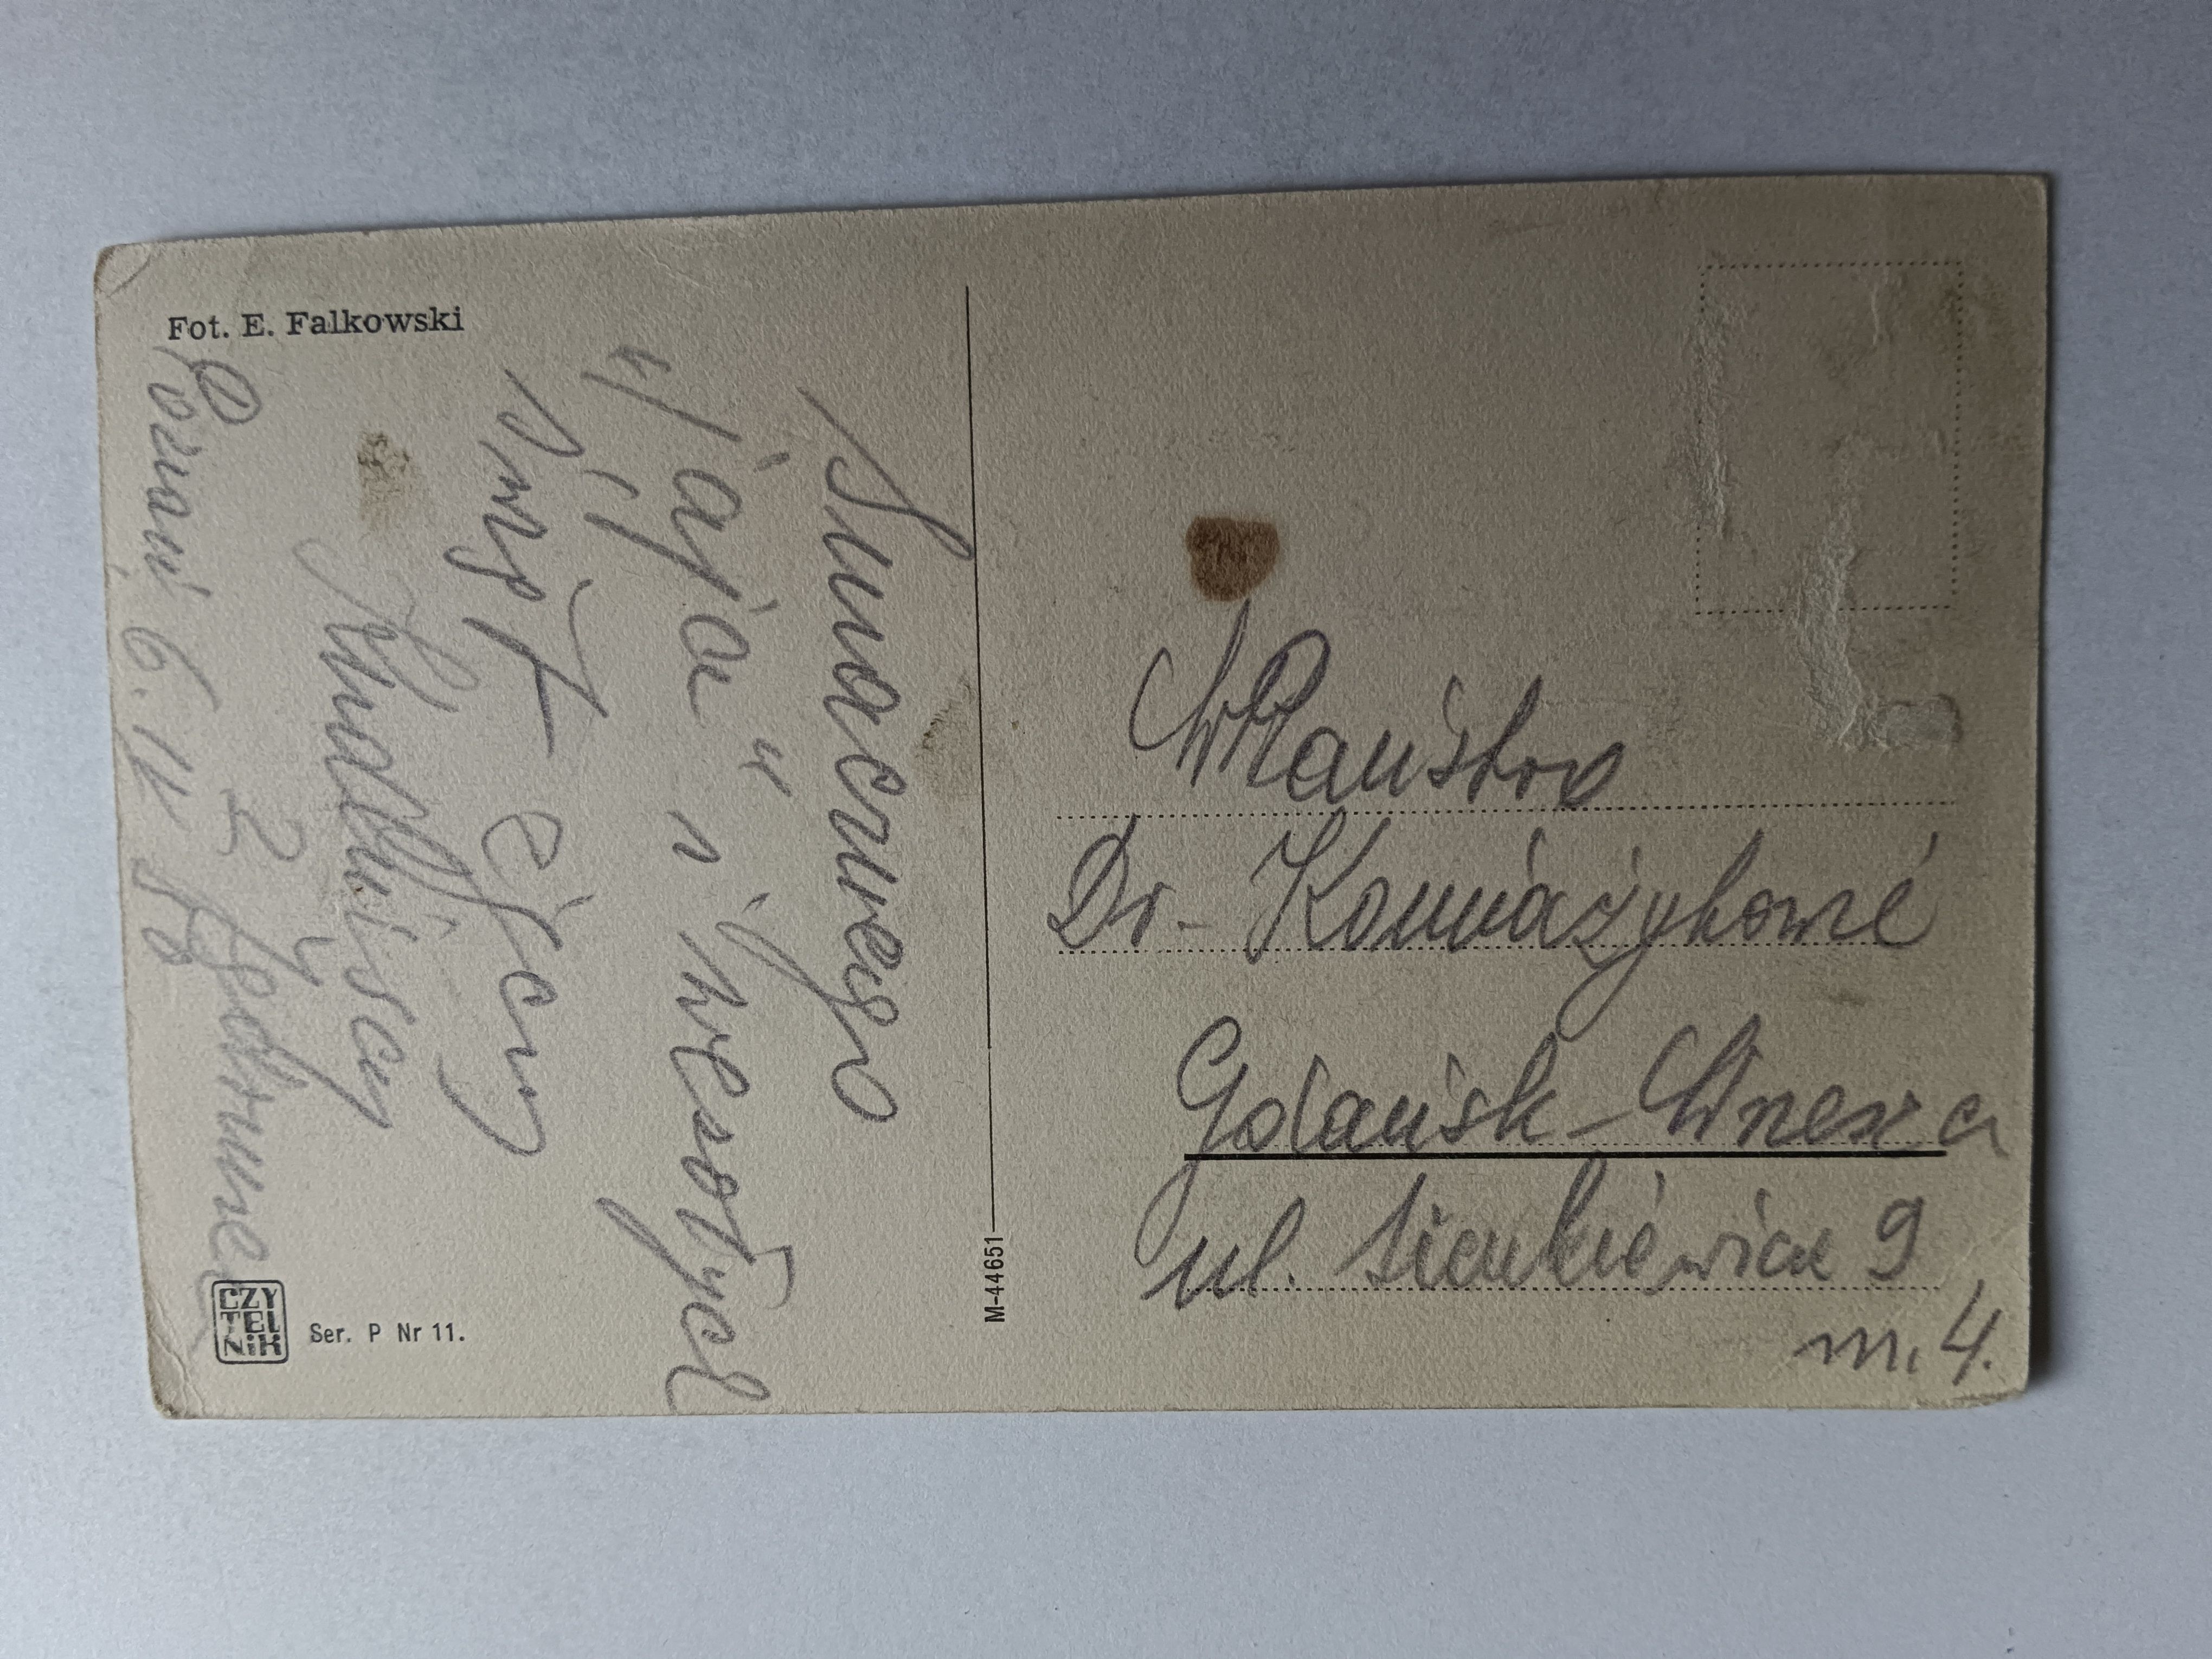 Fot. E. Falkowski
Smacznego
"jaja" i wesołych
Świąt życzy
z Jędrunem
Poznań 6. IV 50
CZYTELNIK
Ser. P Nr 11.
M-44651
WPaństwo
Dr-
Gdańsk-Wrzeszcz
ul. Sienkiewicza 9
m. 4.